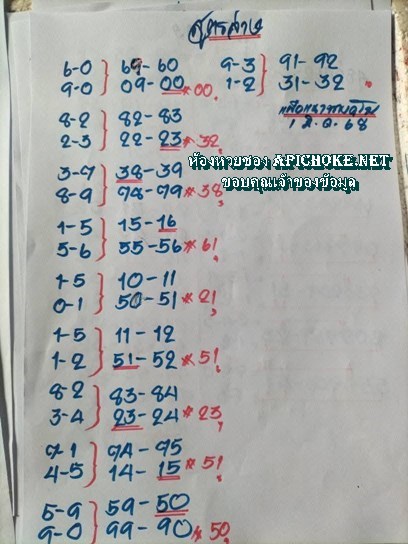 สูตรล่าง
6-0 } 69-60
9-0 } 09-00 *00,
9-3 } 91-92
1-2 } 31-32
1 ส.ค. 68
8-2 } 82-83
2-3 } 22-23 *32,
ห้องหวยซอง APICHOKE.NET
ขอบคุณเจ้าของข้อมูล
3-7 } 38-39
8-9 } 78-79 *38,
1-5 } 15-16
5-6 } 55-56 *61,
1-5 } 10-11
0-1 } 50-51 *21,
1-5 } 11-12
1-2 } 51-52 *51,
8-2 } 83-84
3-4 } 23-24 *23,
9-1 } 94-95
4-5 } 14-15 *51,
5-9 } 59-50
9-0 } 99-90 *50,